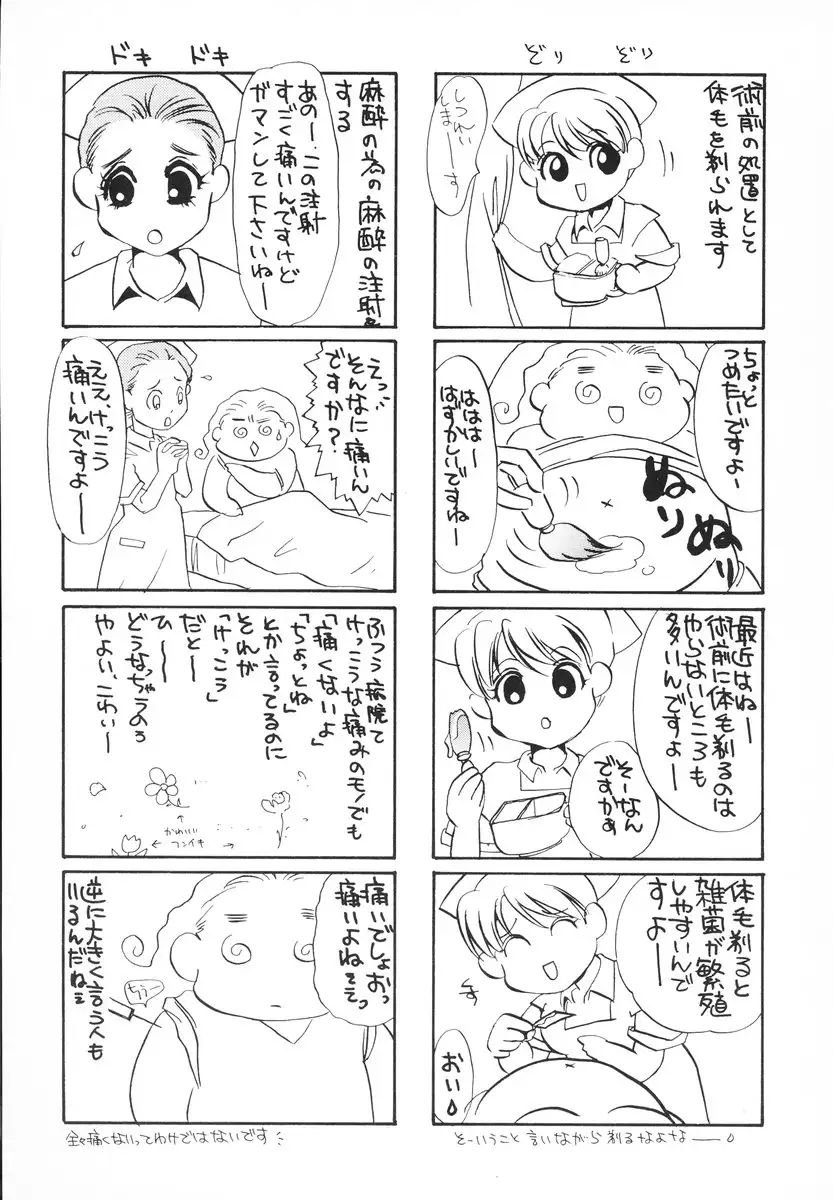 ぞり　ぞり
術前の処置として
体毛を剃られます
しつれい
しまーーす
ちょっと
つめたいですよー
ぬりぬり
ははは
はずかしいですねー
最近はねー
術前に体毛剃るのは
やらないところも
多いんですよー
そーなん
ですかぁ
体毛剃ると
雑菌が繁殖
しやすいんで
すよー
す
おい
そーいうこと言いながら剃るなよなーー
ドキ　ドキ
麻酔の為の麻酔の注射を
する
あのー、この注射
すごく痛いんですけど
ガマンして下さいねー
えっ
そんなに痛いん
ですか?
ええ、けっこう
痛いんですよー
ふつう病院て
けっこうな痛みのモノでも
「痛くないよ」
「ちょっとね」
とか言ってるのに
それが
「けっこう」
だとー
ひーー
どうなっちゃうのぉ
やよい、こわいー
↑
かわいい
←フンイキ→
痛いでしょおっ
痛いよねぇえっ
ちうー
逆に大きく言う人も
いるんだねぇ
全々痛くないってわけではないです